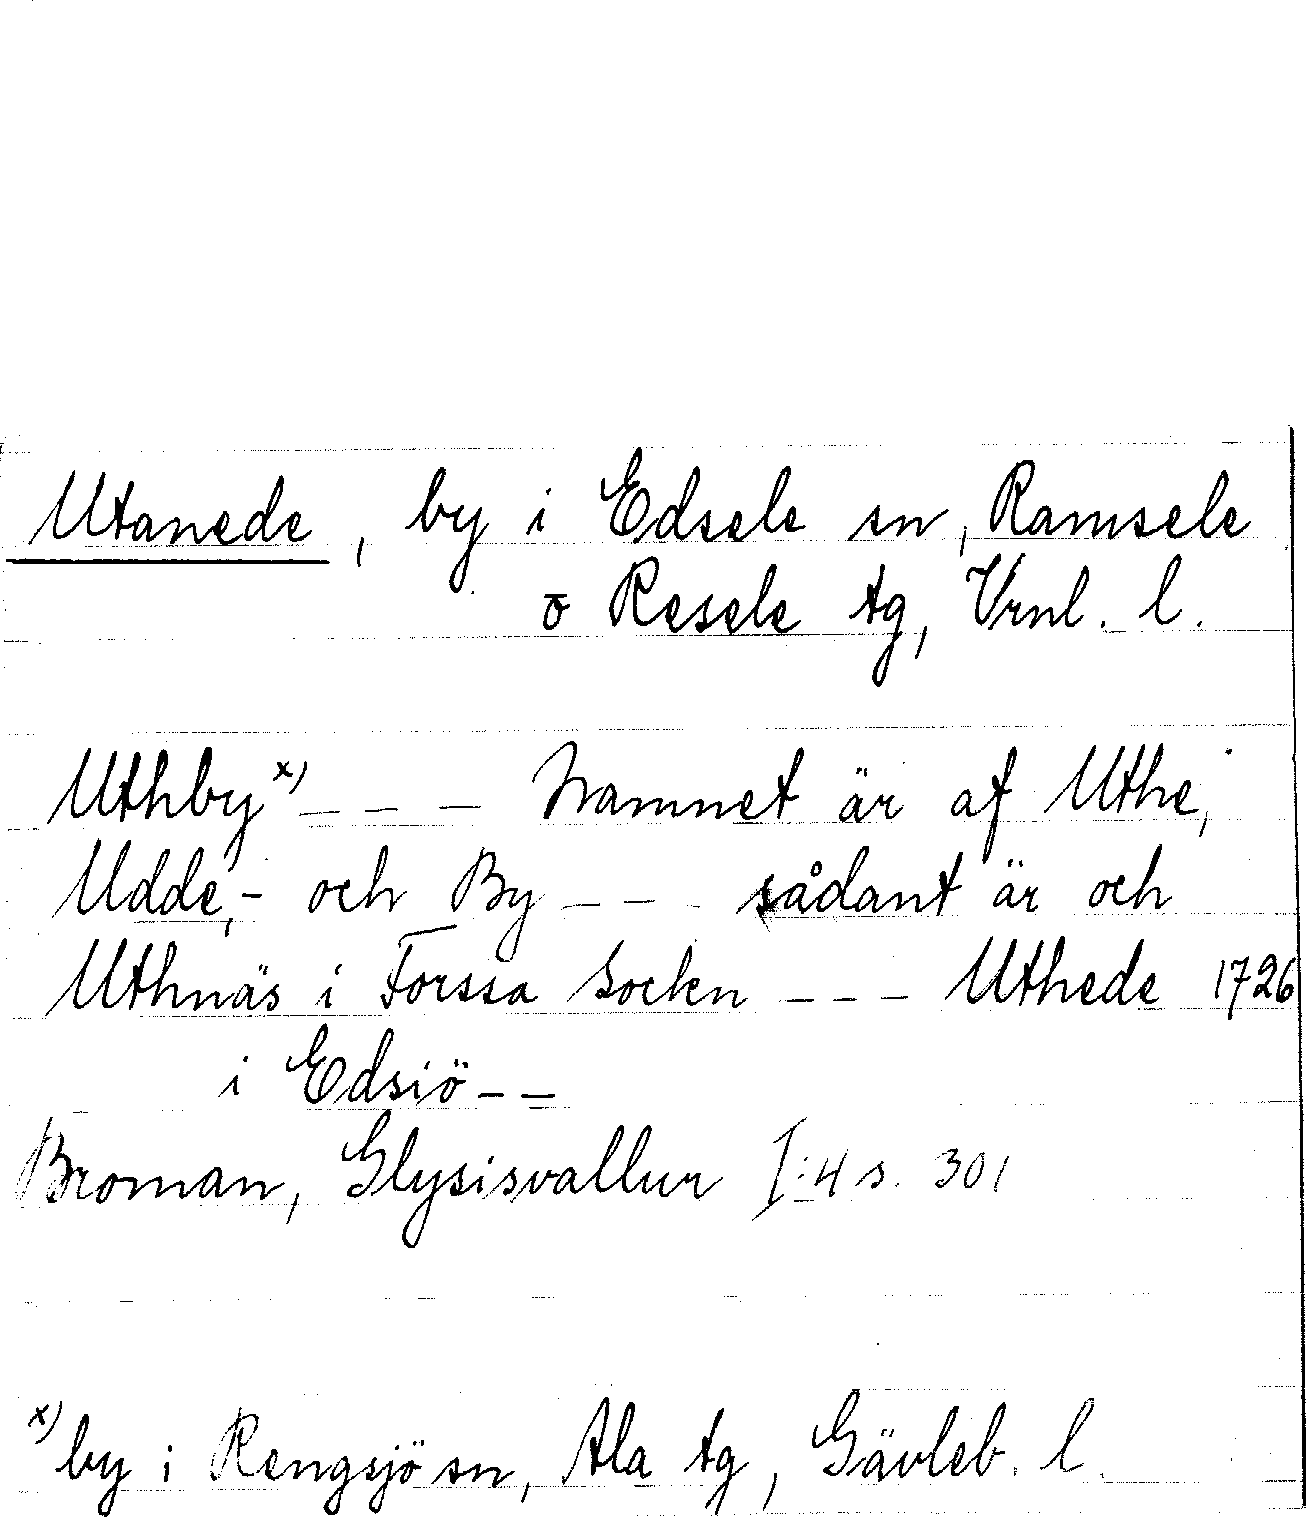 Utanede, by i Edsele sn, Ramsele
o Resele tg, Vrnl. l.
Uthby x) - - - Namnet är af Uthe,
Udde,- och By - - - sådant är och
Uthnäs i Forssa Socken - - - Uthede 1726
i Edsiö - -
Broman, Glysisvallur I:4 s. 301
x) by i Rengsjö sn, Ala tg, Gävleb. l.